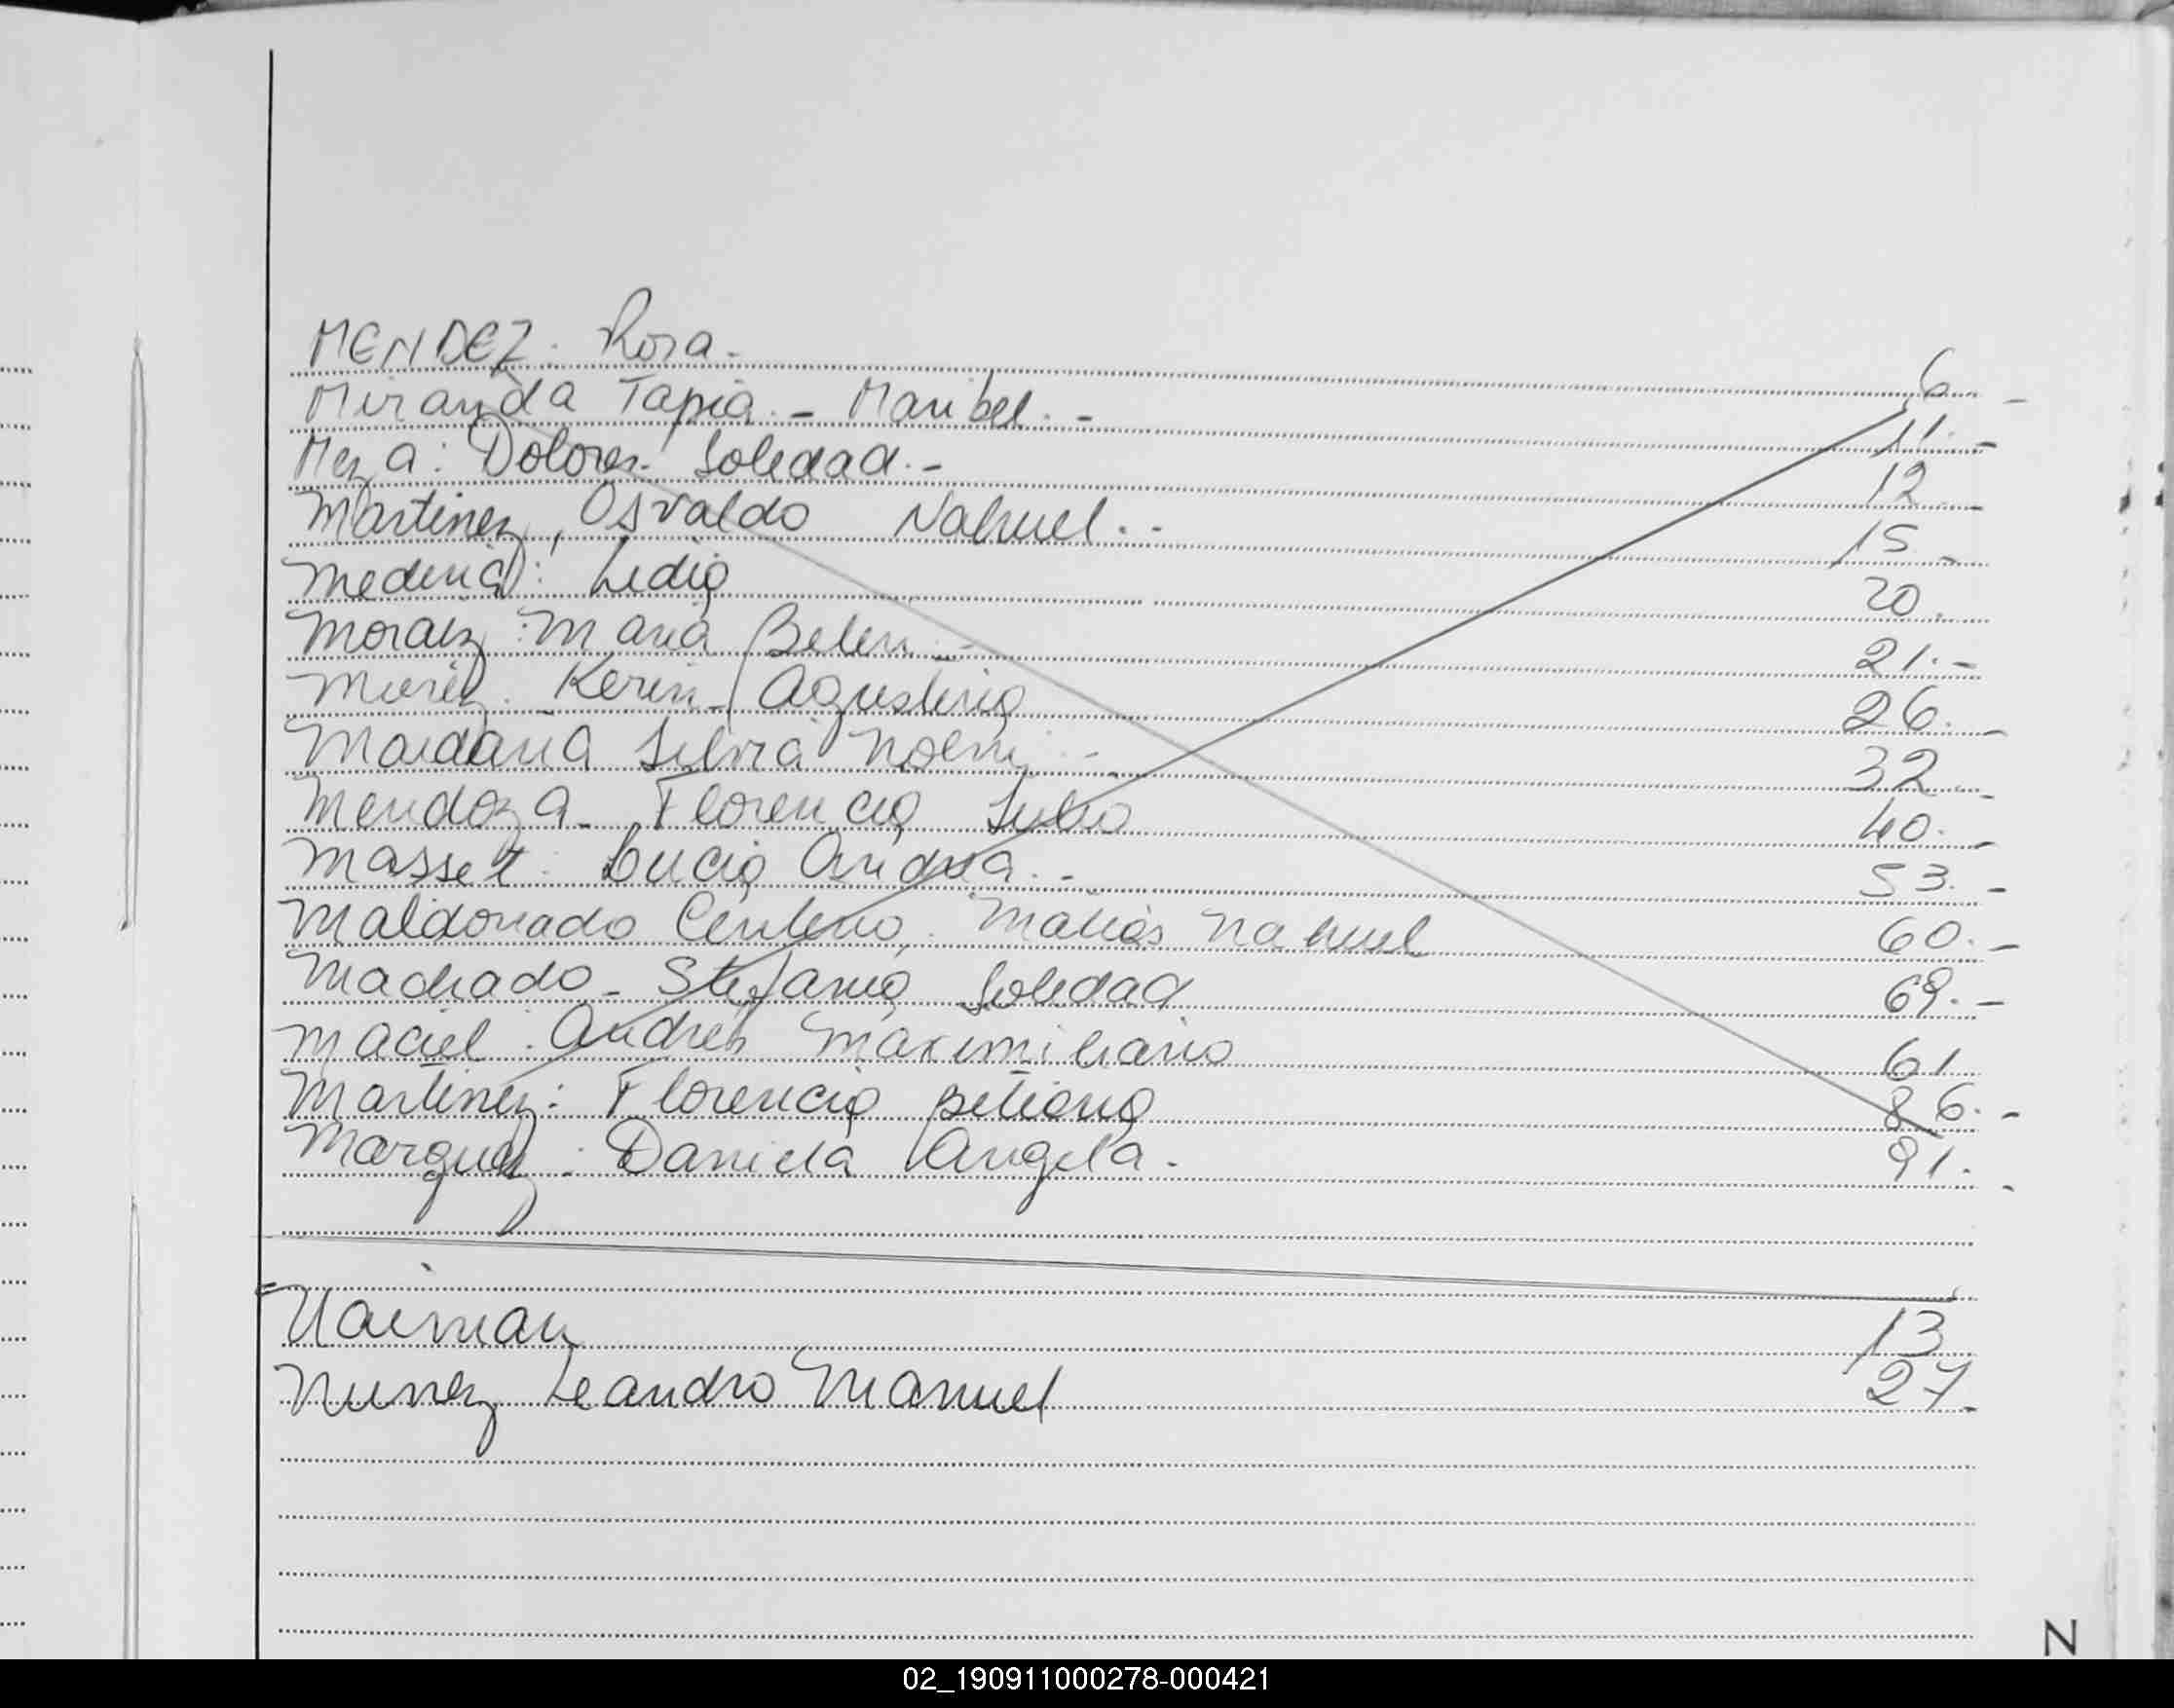 MENDEZ: Rosa.- 6.-
Miranda Tapia.- Maribel.- 11.-
Meza: Dolores Soledad.- 12.-
Martinez, Osvaldo Nahuel.- 15.-
Medina: Lidia 20.
Moraez: Maria Belen.- 21.-
Kerin Agustina 26.-
Maidana Silvia Noemi.- 32.-
Mendoza- Florencia Julia 40.-
Masset: Lucia Andrea.- 53.-
Maldonado Centeno, Matias Nahuel 60.-
Machado- Stefania Soledad 69.-
Maciel: Andres Maximiliano 61
Martinez: Florencia Betiana 86.-
Marquez: Daniela Angela. 91.-
Naiman 13
Nuñez Leandro Manuel 27.-
N
02_190911000278-000421